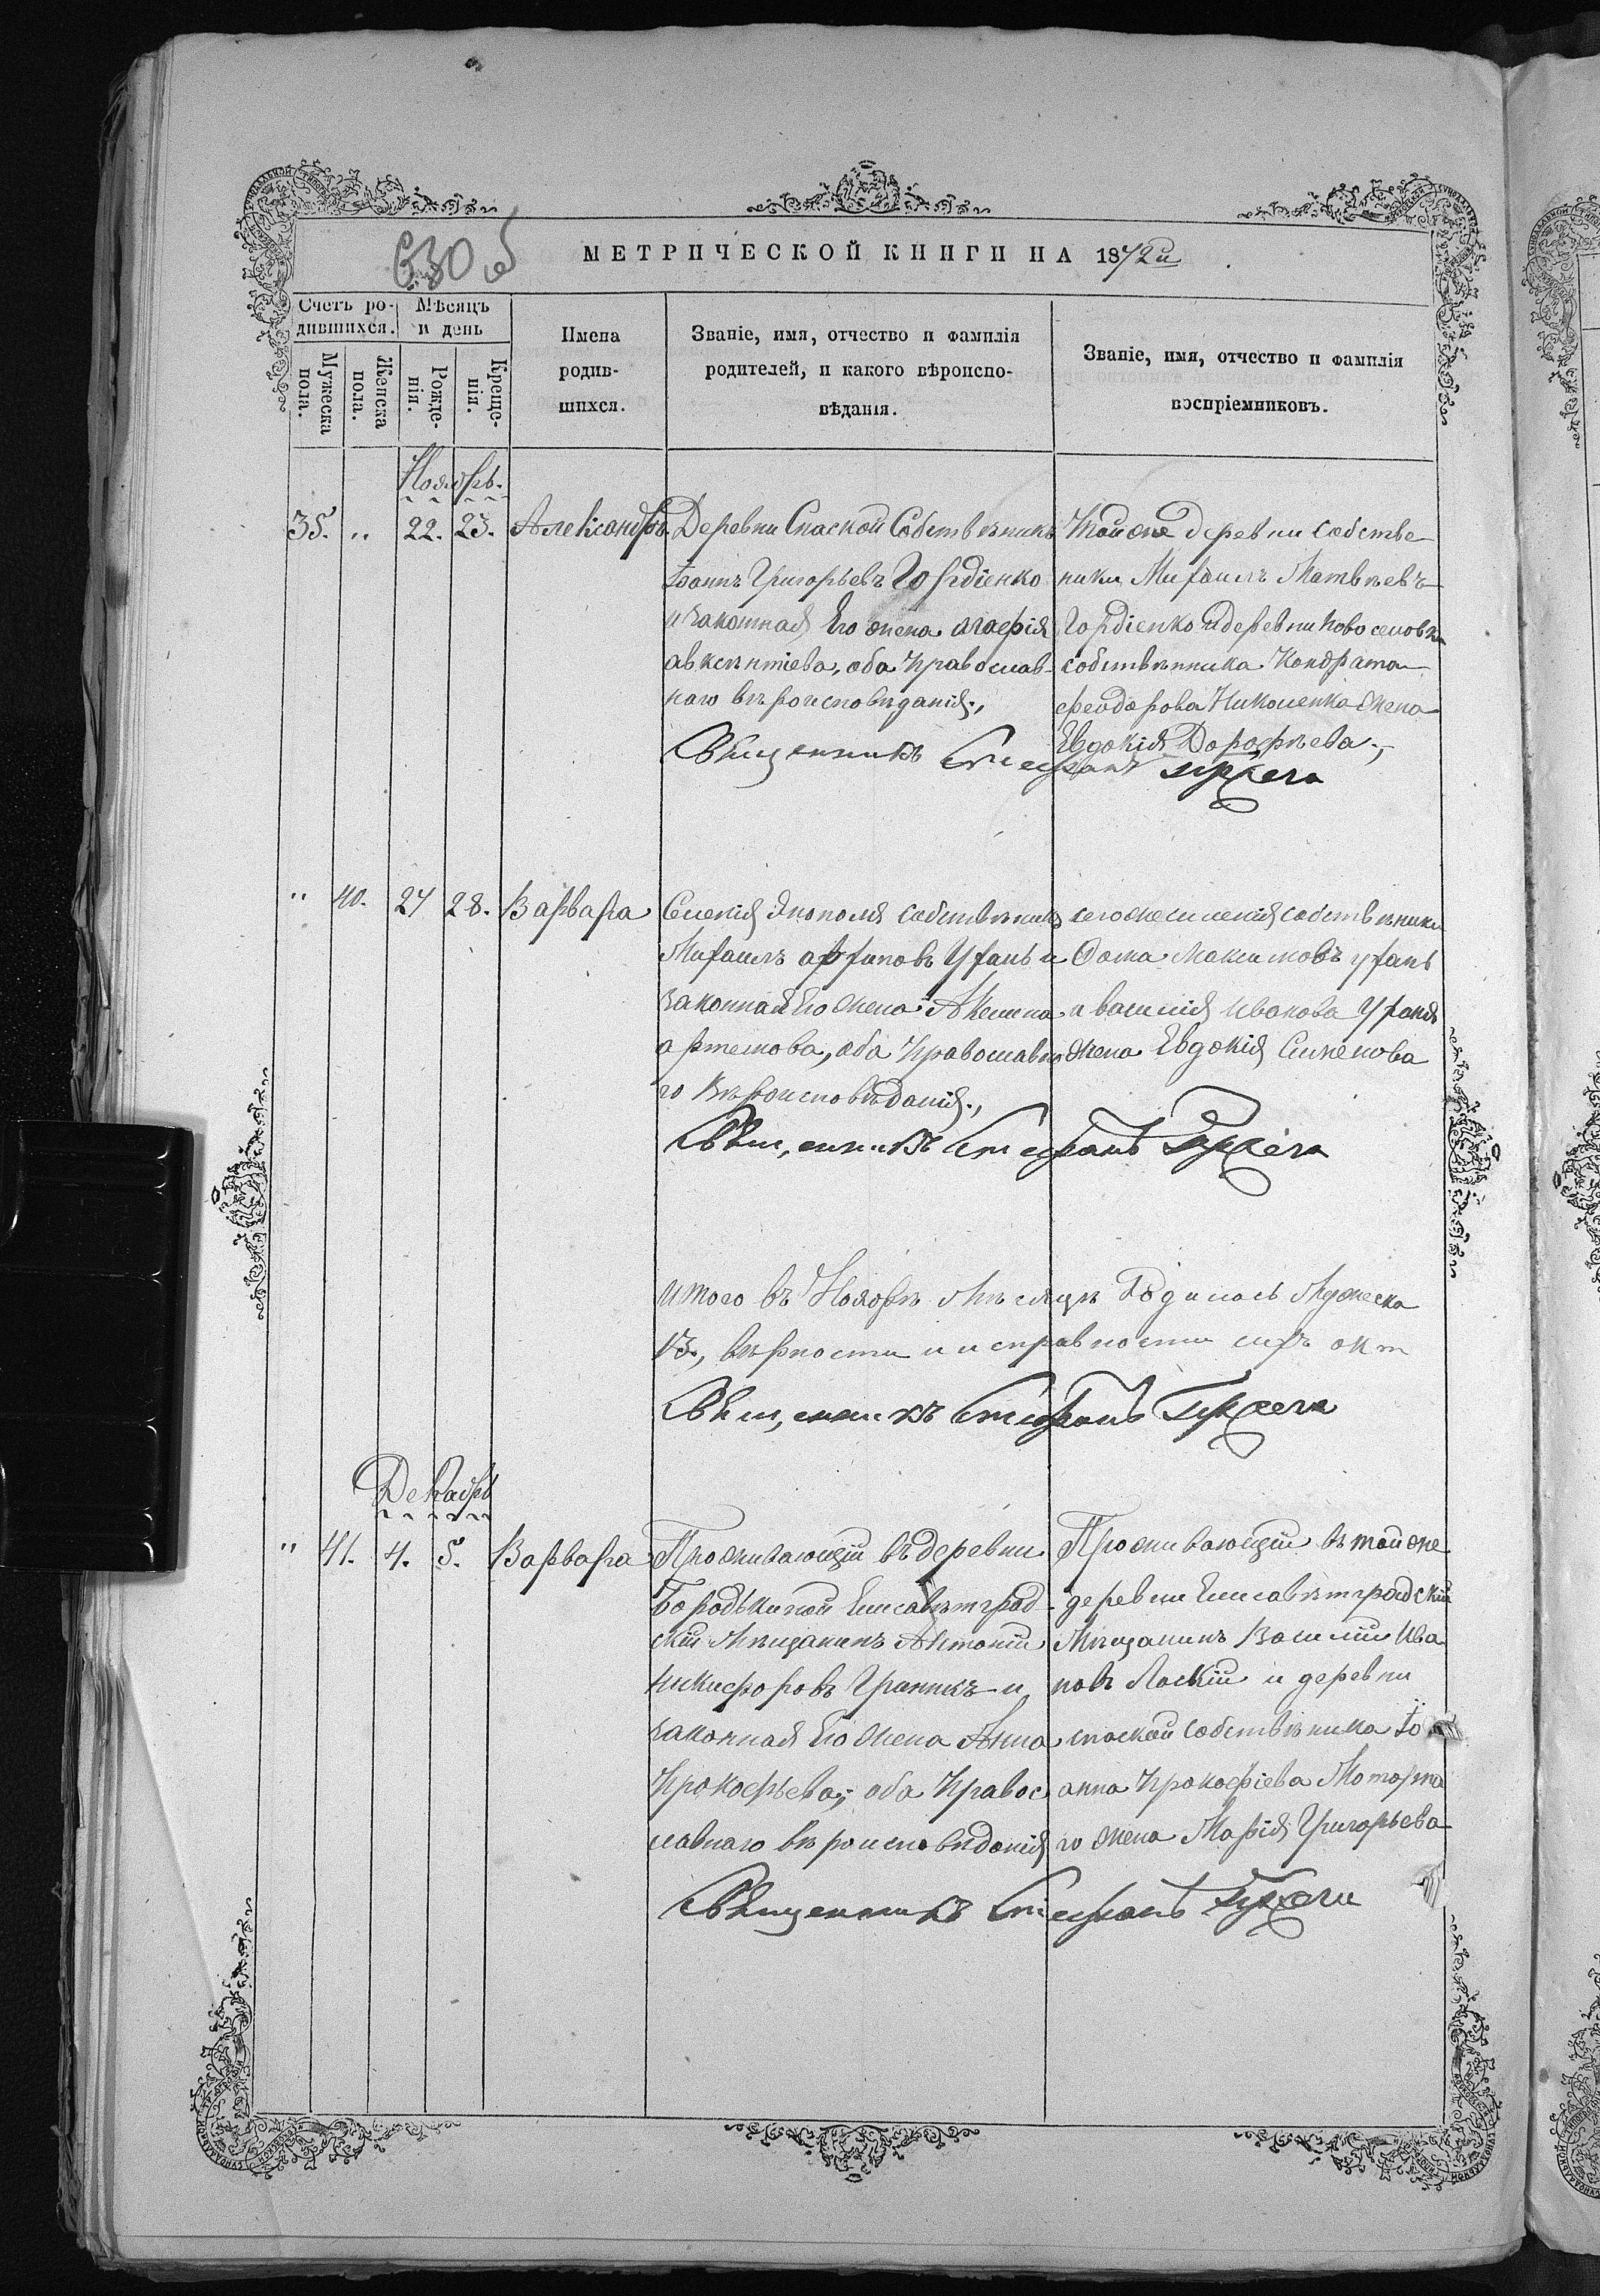 630 об
МЕТРИЧЕСКОЙ КНИГИ НА 1872й
Счетъ ро-
дившихся.
Мѣсяцъ
и день
Мужеска
пола.
Женска
пола.
Рожде-
нія.
Креще-
нія.
Имена
родив-
шихся.
Званіе, имя, отчество и фамилія
родителей, и какого вѣроиспо-
вѣданія.
Званіе, имя, отчество и фамилія
воспріемниковъ.
Ноябрь.
35. " 22. 23. Александръ
Деревни Спаской Собственникъ
Іоаннъ Григорьевъ Гордіенко
и законная Его жена Агафія
авксентіева, оба Православ-
наго вѣроисповѣданія.,
Тойже деревни Собстве
ники Михаилъ Матвѣевъ
Гордіенко и деревни Новоселовк
собственника Кондрата
феодорова Николенка жена
Евдокія Дорофѣева.,
Священникъ Стефанъ
" 40. 27 28. Варвара
Селенія собственникъ
Михаилъ Уханъ и
законная Его жена Акилина
артемова, оба Православна
го Вѣроисповѣданія.,
сегоже селенія собственники
Фома Максимовъ уханъ
а василія Иванова
жена Евдокія Сименова
Священникъ Стефанъ
итого въ Ноябрѣ Мѣсяцѣ Родилось Мужеска
13., вѣрности и исправности сихъ
Священникъ Стефанъ
Декабрь
" 41. 4. 5. Варвара
Проживающій въ деревни
Бородькиной Елисаветград-
скій Мѣщанинъ Антоній
Никифоровъ и
законная Его жена Анна
Прокофьева; оба Правос
лавнаго вѣроисповѣданія
Проживающій въ той же
деревни Елисаветградскій
Мѣщанинъ Василій Ива
новъ Лоскій и деревни
спаской Собственника Іо
анна Прокофіева Моторна
го жена Марія Григорьева
Священникъ Стефанъ